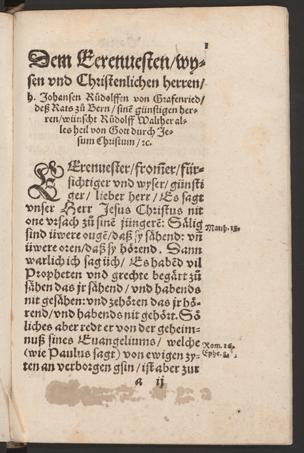 1
Dem Eerenuesten/wy-
sen vnd Christenlichen herren/
h. Johansen Růdolffen von Grafenried/
deß Rats zů Bern/sinē günstigen her-
ren/wünscht Růdolff Walther al-
les heil von Gott durch Je-
sum Christum/ꝛc.
EErenuester/from̄er/für-
sichtiger vnd wyser/günsti
ger/lieber herr/Es sagt
vnser Herr Jesus Christus nit
one vrsach zů sinē jüngerē: Sälig
sind üwere ougē/daß sy sähend: vn̄
üwere oren/daß sy hörend. Dann
warlich ich sag üch/Es habēd vil
Propheten vnd grechte begärt zů
sähen das jr sähend/vnd habends
nit gesähen: vnd zehören das jr hö-
rend/vnd habends nit gehört. Sö
liches aber redt er von der geheim-
nuß sines Euangeliums/welche
(wie Paulus sagt) von ewigen zy-
ten an verborgen gsin/ist aber zur
a ij
Matth. 13.
Rom. 16.
Ephe. 3.